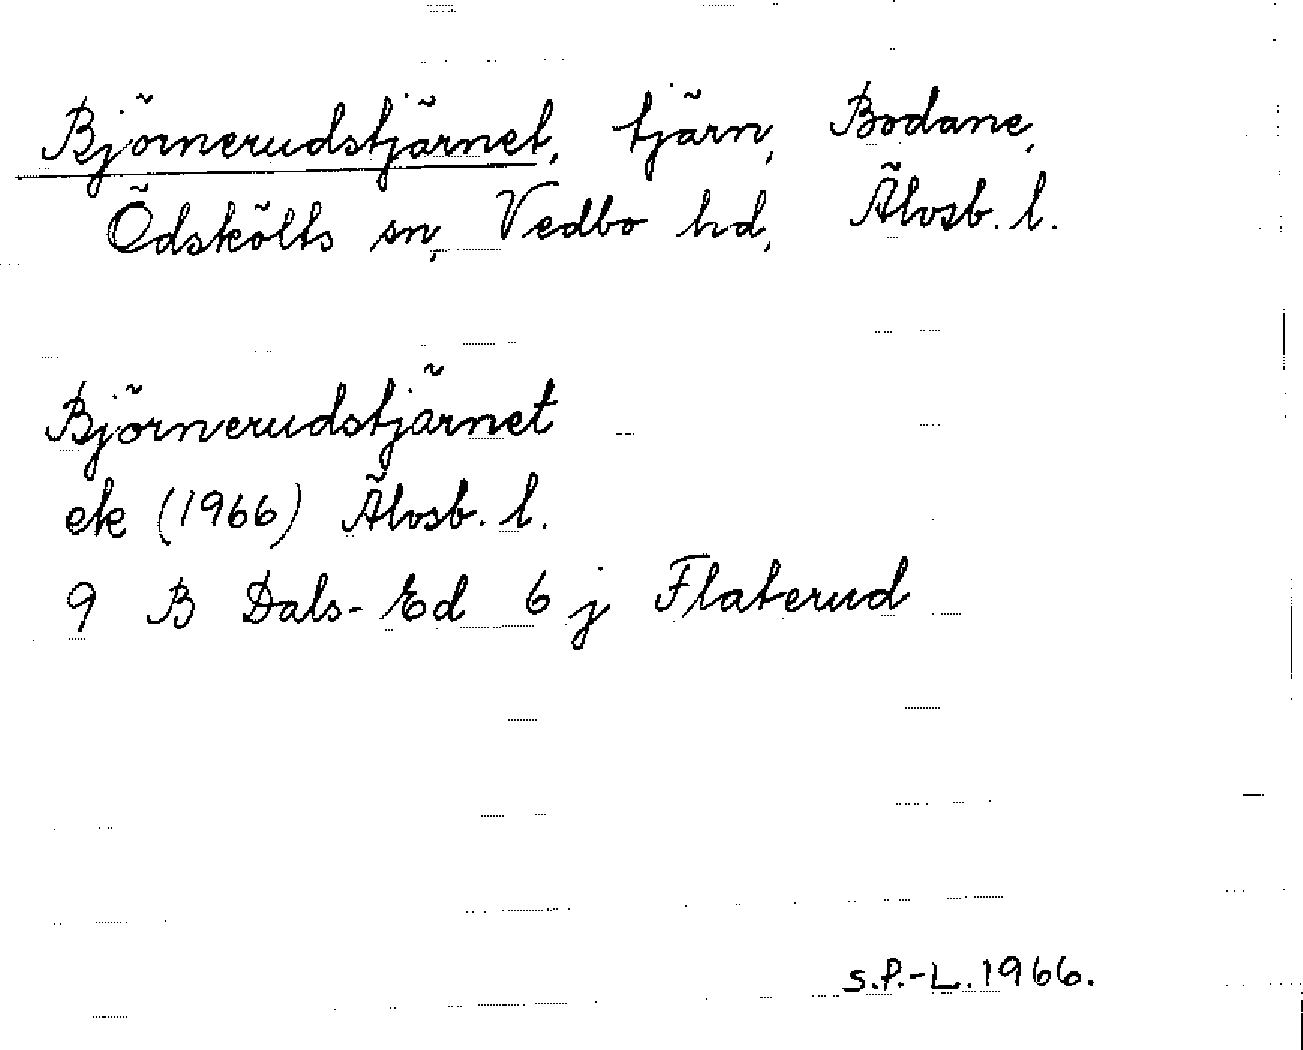 Björnerudstjärnet, tjärn, Bodane,
Ödskölts sn, Vedbo hd, Älvsb. l.
Björnerudstjärnet
ek (1966) Älvsb. l.
9 B Dals-Ed 6 j Flaterud
S.P.-L. 1966.